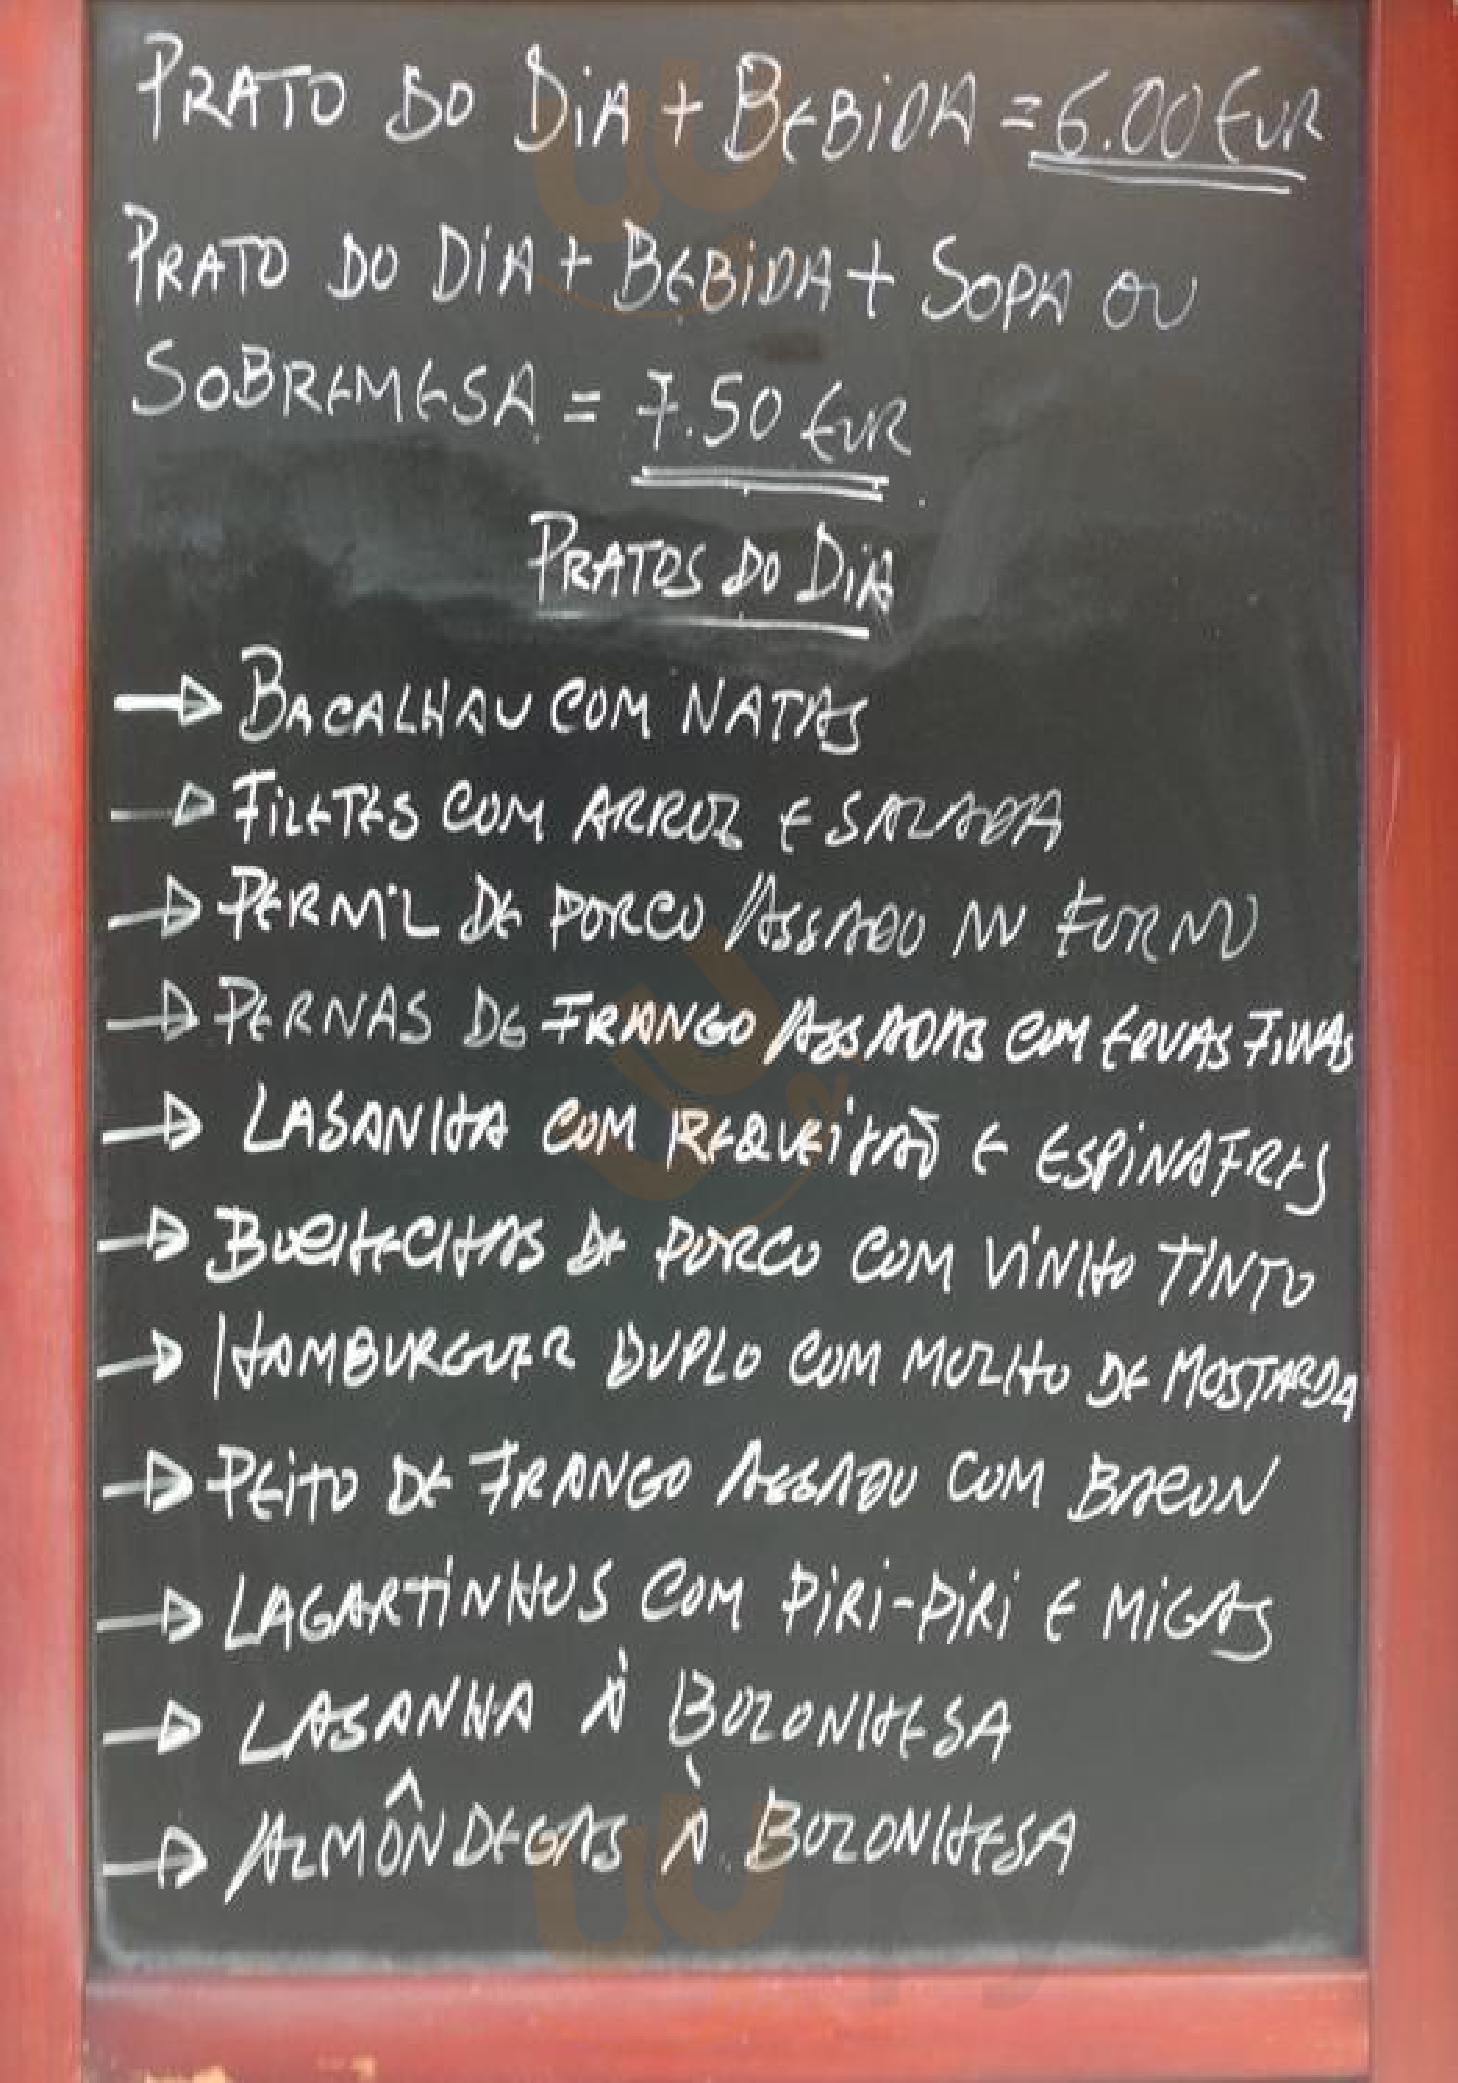 PRATO DO DIA + BEBIDA = 6.00 EUR
PRATO DO DIA + BEBIDA + SOPA OU
SOBREMESA = 7.50 EUR
PRATOS DO DIA
BACALHAU COM NATAS
FILETES COM ARROZ E SALADA
PERNIL DE PORCO ASSADO NO FORNO
PERNAS DE FRANGO ASSADAS COM ERVAS FINAS
LASANHA COM REQUEIJÃO E ESPINAFRES
BOCHECHAS DE PORCO COM VINHO TINTO
HAMBURGUER DUPLO COM MOLHO DE MOSTARDA
PEITO DE FRANGO ASSADO COM BACON
LAGARTINHOS COM PIRI-PIRI E MIGAS
LASANHA À BOLONHESA
ALMÔNDEGAS À BOLONHESA